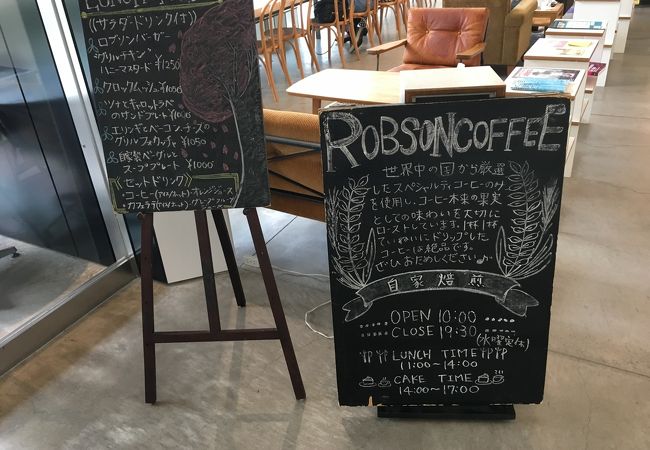 ((サラダ・ドリンク付))
ロブソンバーガー
グリルチキン
ハニーマスタード ¥1250
クロックムッシュ ¥1050
ツナとキャロットラペ
のサンドプレート ¥1000
エリンギとベーコンチーズの
グリルフォカッチャ ¥1050
自家製ベーグルと
スーププレート ¥1000
セットドリンク
・コーヒー(アイスorホット)・オレンジジュース
・カフェラテ(アイスorホット)
ROBSON COFFEE
世界中の国から厳選
したスペシャルティコーヒーのみ
を使用し、コーヒー本来の果実
としての味わいを大切に
ローストしています。1杯1杯
ていねいにドリップした
コーヒーは絶品です。
ぜひおためしください♪
自家焙煎
OPEN 10:00
CLOSE 19:30
(水曜定休)
LUNCH TIME
11:00~14:00
CAKE TIME
14:00~17:00